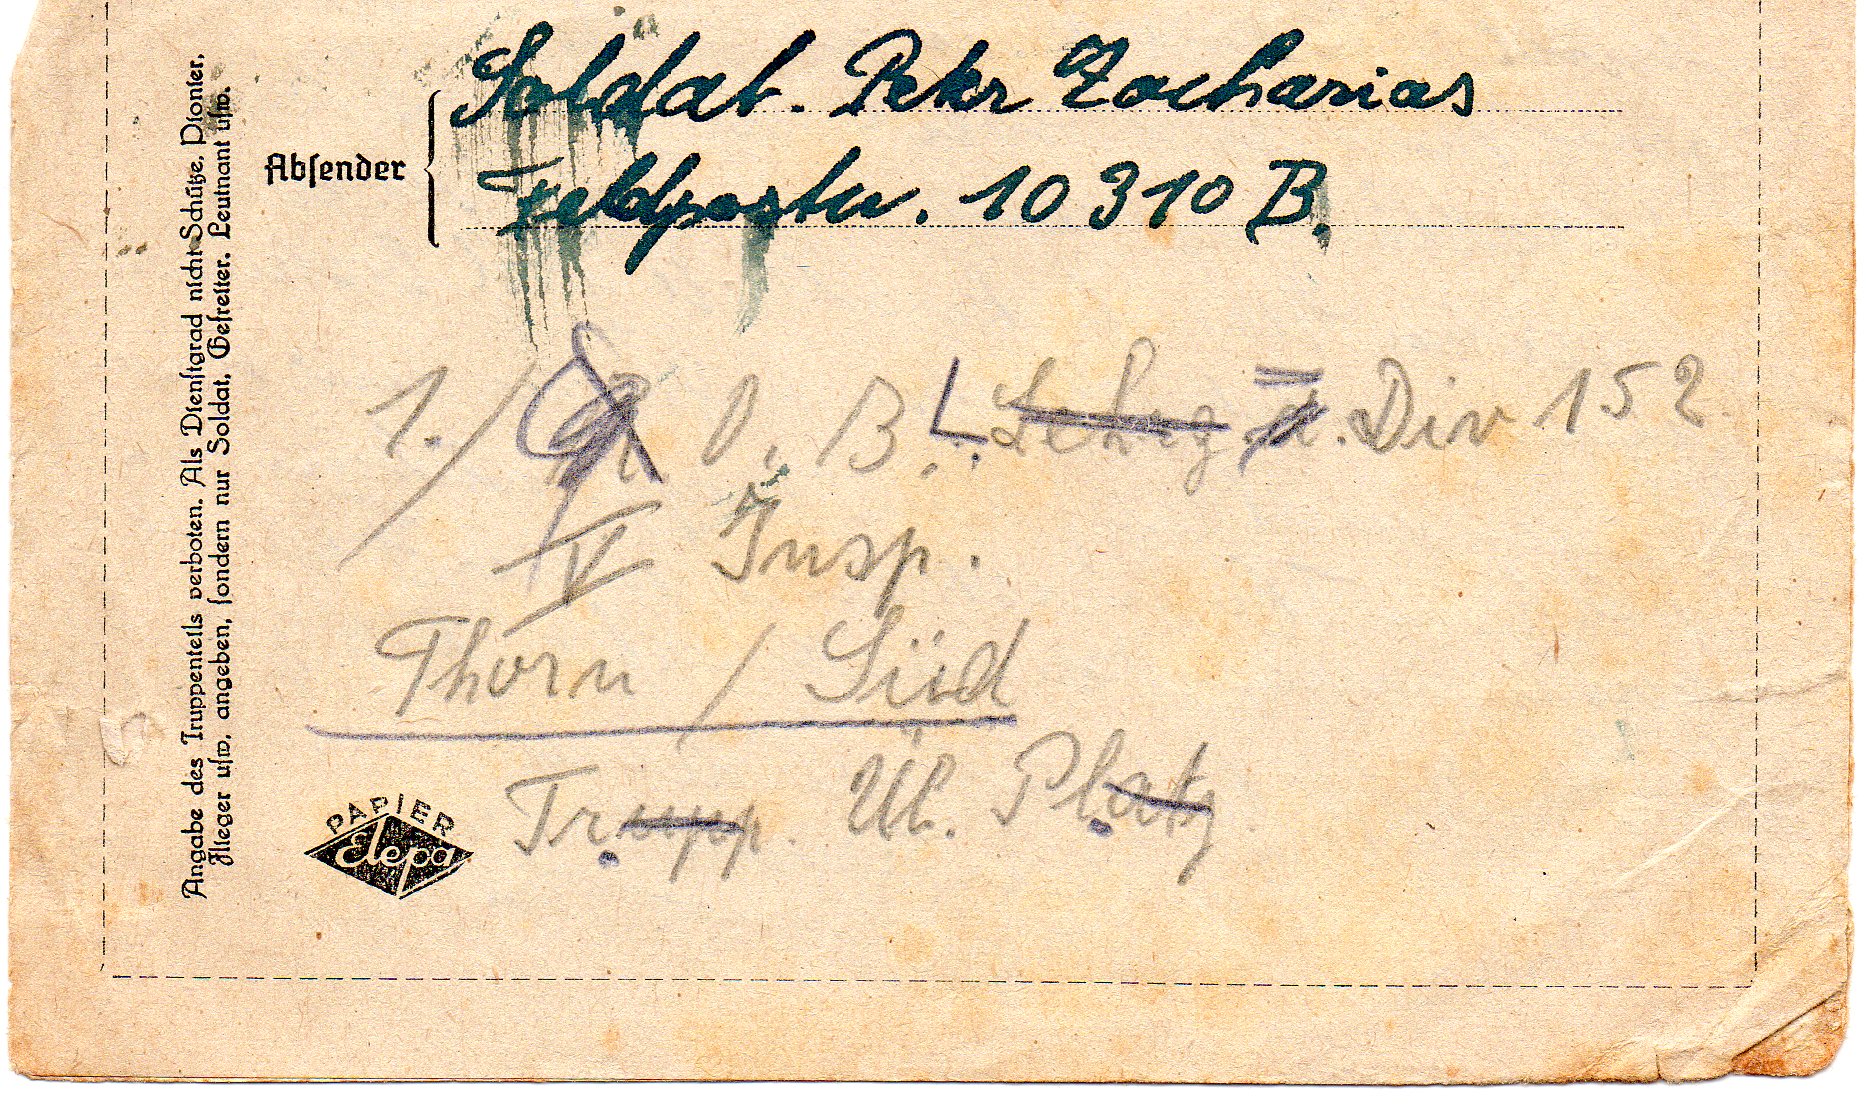 Soldat. Peter Zacharias
Absender
Feldpostnr. 10310 B.
1./ O. B. L. Lehrg. Div 152
V Insp.
Thorn / Süd
Trupp. Üb. Platz
PAPIER
Elepa
Angabe des Truppenteils verboten. Als Dienstgrad nicht Schütze, Pionier,
Flieger usw. angeben, sondern nur Soldat, Gefreiter, Leutnant usw.